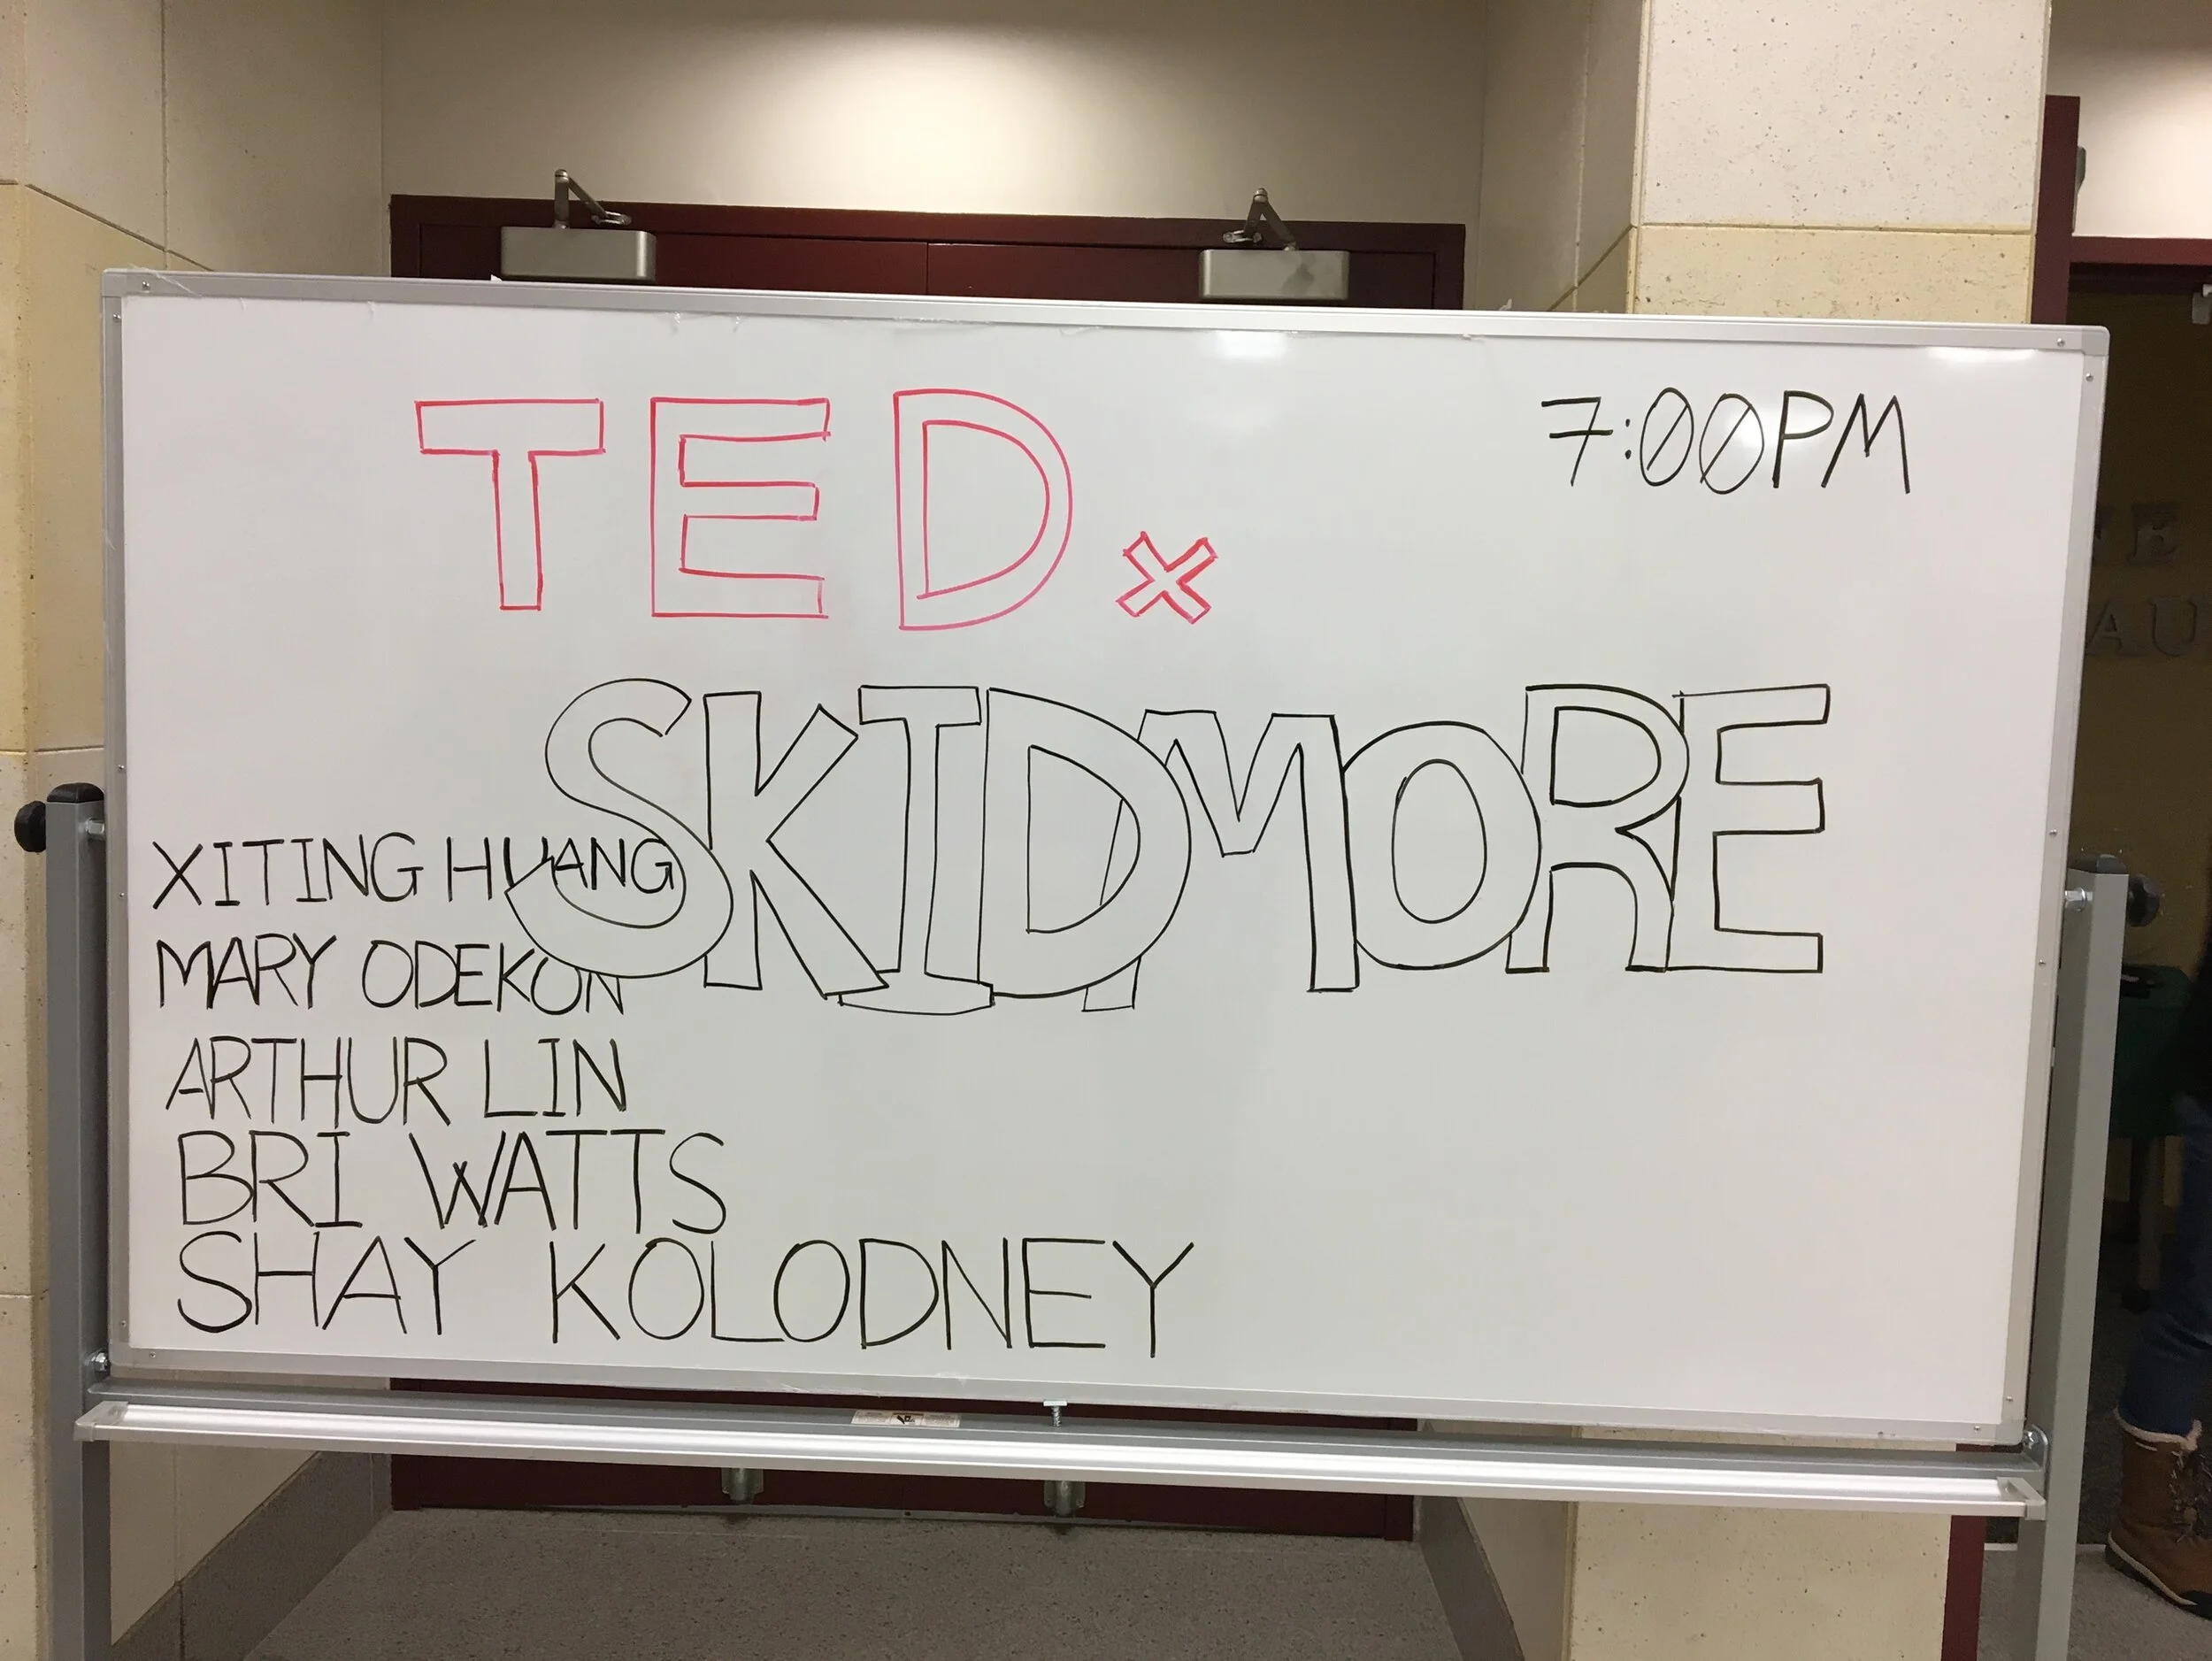 TEDx
7:00PM
SKIDMORE
XITING HUANG
MARY ODEKON
ARTHUR LIN
BRI WATTS
SHAY KOLODNEY